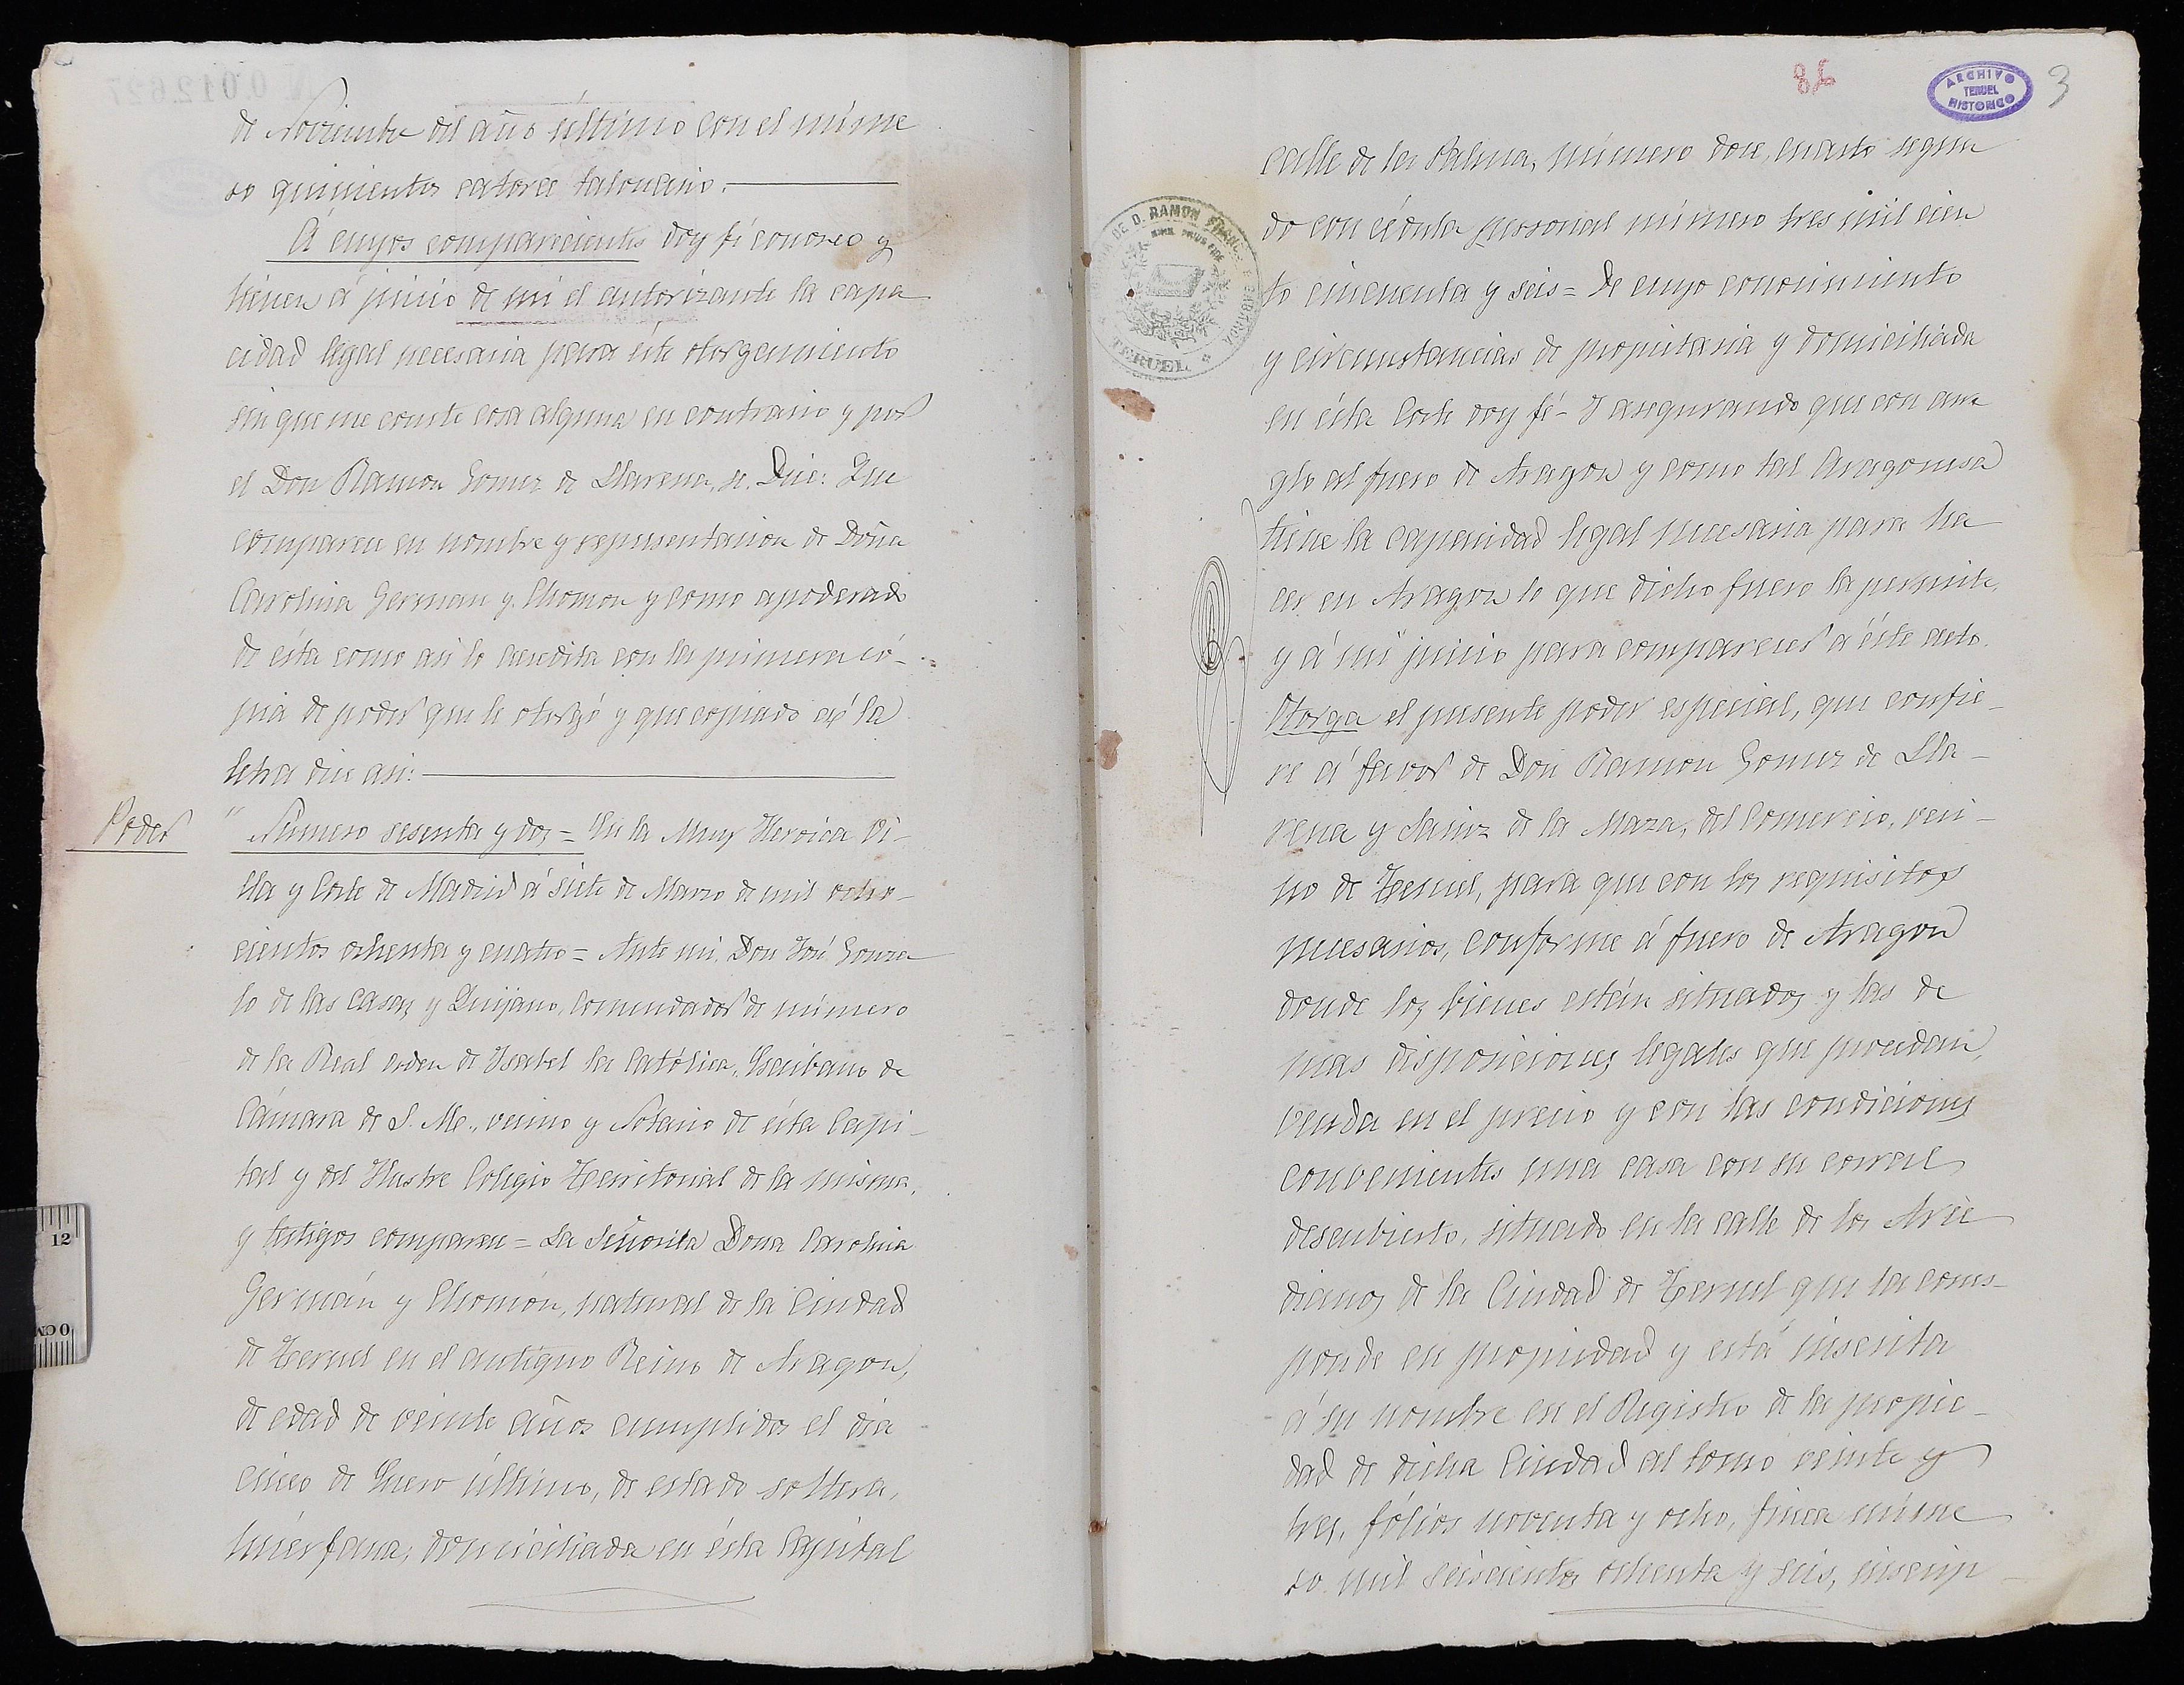 de Noviembre del año último con el núme
ro quinientos catorce talonario.
Á cuyos comparecientes doy fé conozco y
tienen á juicio de mi el autorizante la capa
cidad legal necesaria para éste otorgamiento
sin que me conste cosa alguna en contrario y por
el Don Ramon Gomez de Llarena, se. Dice: Que
comparece en nombre y representacion de Doña
Carolina German y Chomon y como apoderado
de ésta como asi lo acredita con la primera có-
pia de poder que le otorgó y que copiado á la
letra dice asi:
Poder
" Número sesenta y dos = En la Muy Heroica Vi-
lla y Corte de Madrid á siete de Marzo de mil ocho-
cientos ochenta y cuatro = Ante mi, Don José Gonza
lo de las Casas y Quijano, Comendador de número
de la Real orden de Isabel la Católica, Escribano de
Cámara de S. M., vecino y Notario de ésta Capi-
tal y del Ilustre Colegio Territorial de la misma,
y testigos comparece = La Señorita Doña Carolina
Germán y Chomón, natural de la Ciudad
de Teruel en el antiguo Reino de Aragon,
de edad de veinte años cumplidos el dia
cinco de Enero último, de estado soltera,
huérfana, domiciliada en ésta Capital
86
ARCHIVO
TERUEL
HISTORICO
3
calle de la Palma, número doce, cuarto segun
do con cédula personal número tres mil cien
to cincuenta y seis = De cuyo conocimiento
y circunstancias de propietaria y domiciliada
en ésta Corte doy fé - Y asegurando que con arre
glo al fuero de Aragon y como tal Aragonesa
tiene la capacidad legal necesaria para ha
cer en Aragon lo que dicho fuero la permite,
y á mi juicio para comparecer á éste acto.
Otorga el presente poder especial, que confie-
re á favor de Don Ramon Gomez de Lla-
rena y Sainz de la Maza, del Comercio, veci-
no de Teruel, para que con los requisitos
necesarios, conforme á fuero de Aragon
donde los bienes están situados y las de
mas disposiciones legales que procedan,
venda en el precio y con las condiciones
convenientes una casa con su corral
descubierto, situado en la calle de los Arce
dianos de la Ciudad de Teruel que la corres-
ponde en propiedad y está inscrita
á su nombre en el Registro de la propie-
dad de dicha Ciudad al tomo veinte y
tres, fólios noventa y ocho, finca núme
ro mil seiscientos ochenta y seis, inscrip
DE D. RAMON
TERUEL